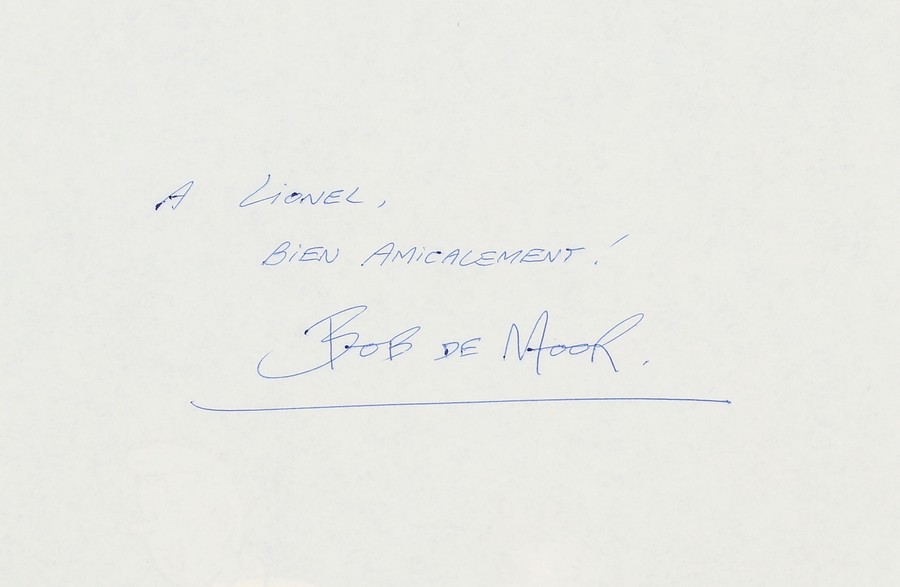 A Lionel,
BiEN AMiCALEMENT !
BOB DE MOOR.